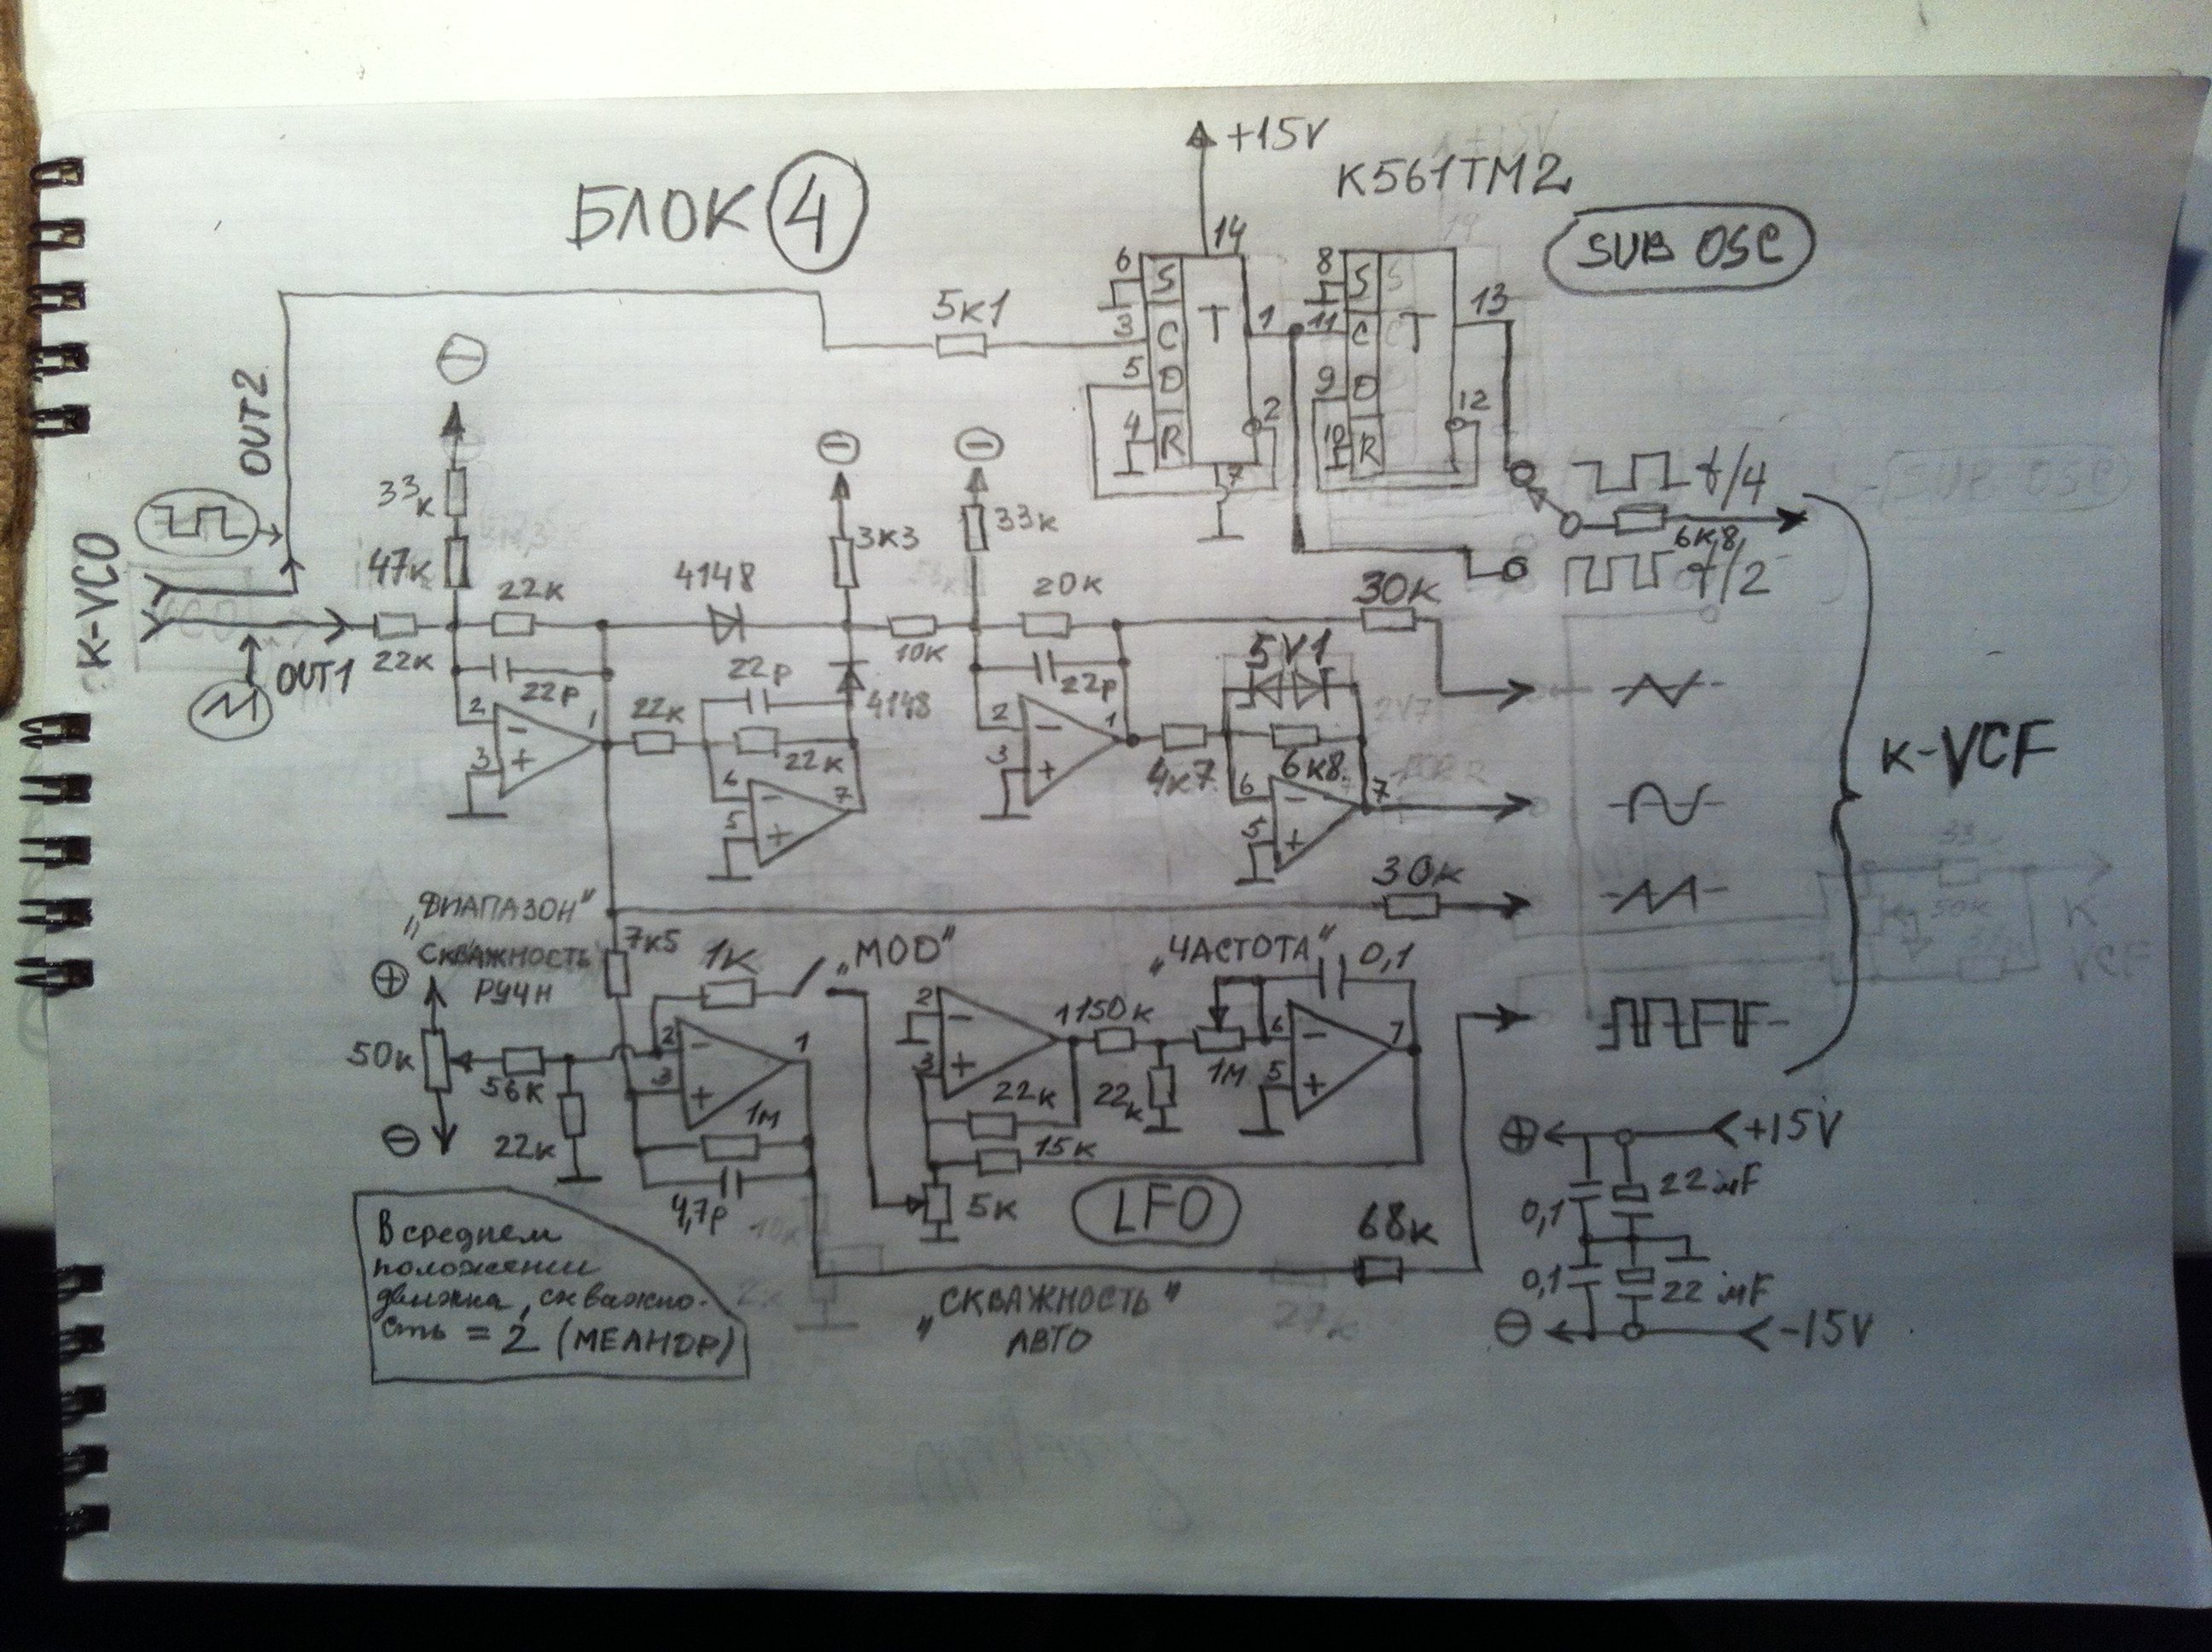 БЛОК 4
+15V
К561ТМ2
SUB OSC
14
6
S
3
C
T
1
5
D
2
4
R
7
8
S
11
C
T
13
9
D
12
10
R
5К1
OUT2
К-VCO
OUT1
33к
47к
22к
22к
22р
2
3
1
4148
3К3
22к
22р
4148
22к
6
5
7
10к
33к
20к
22р
2
3
1
4к7
5V1
6к8
6
5
7
30к
f/4
6к8
f/2
К-VCF
30к
„ДИАПАЗОН"
СКВАЖНОСТЬ
РУЧН
7к5
1К
„МОD"
50к
56к
22к
2
3
1
1м
4,7р
„ЧАСТОТА"
0,1
2
3
1
150к
22к
1М
6
5
7
22к
15к
5к
LFO
68к
„СКВАЖНОСТЬ"
АВТО
+15V
0,1
22 мF
0,1
22 мF
-15V
В среднем
положении
движка, скважно-
сть = 2 (МЕАНДР)